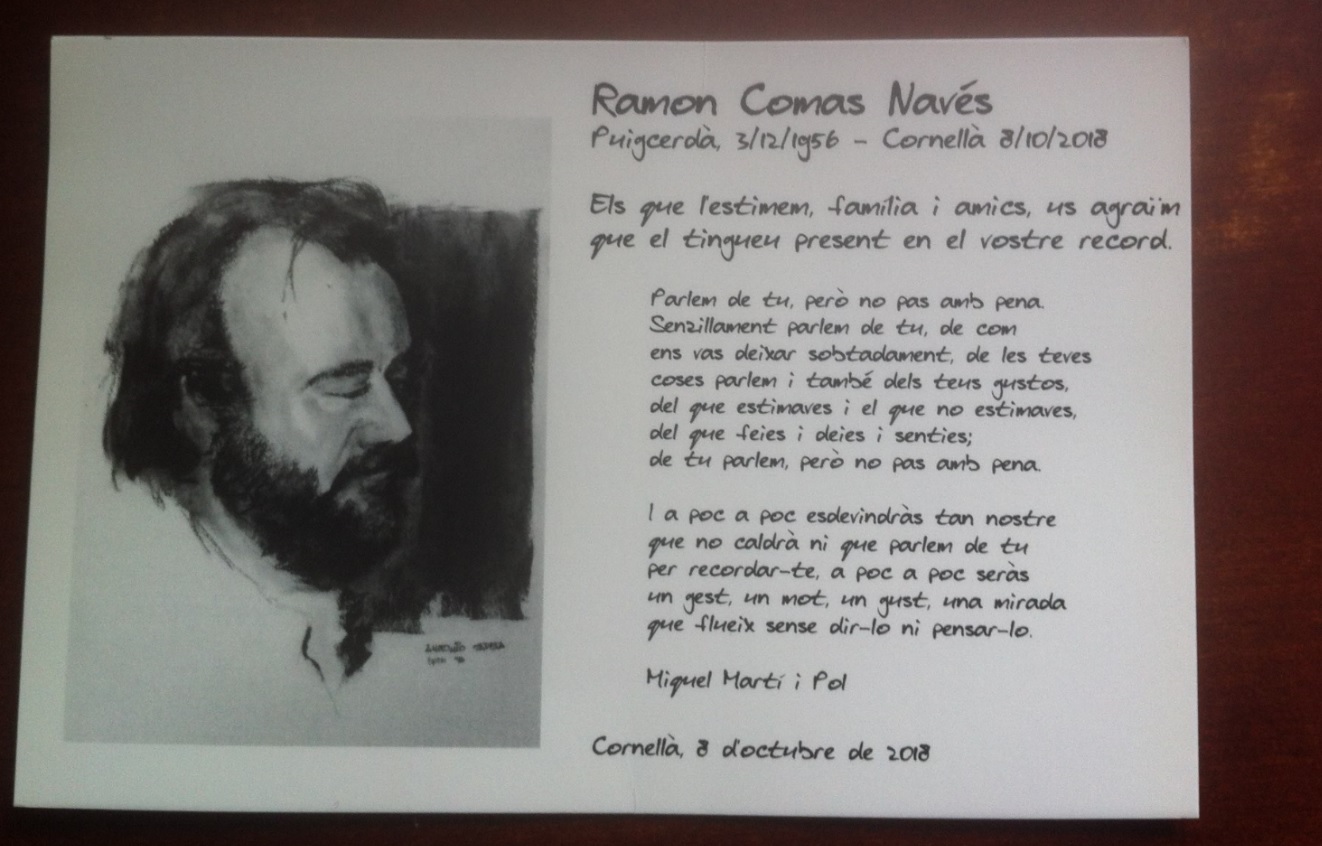 Ramon Comas Navés
Puigcerdà, 3/12/1956 - Cornellà 8/10/2018
Els que l'estimem, família i amics, us agraïm
que el tingueu present en el vostre record.
Parlem de tu, però no pas amb pena.
Senzillament parlem de tu, de com
ens vas deixar sobtadament, de les teves
coses parlem i també dels teus gustos,
del que estimaves i el que no estimaves,
del que feies i deies i senties;
de tu parlem, però no pas amb pena.
I a poc a poc esdevindràs tan nostre
que no caldrà ni que parlem de tu
per recordar-te, a poc a poc seràs
un gest, un mot, un gust, una mirada
que flueix sense dir-lo ni pensar-lo.
Miquel Martí i Pol
Cornellà, 8 d'octubre de 2018